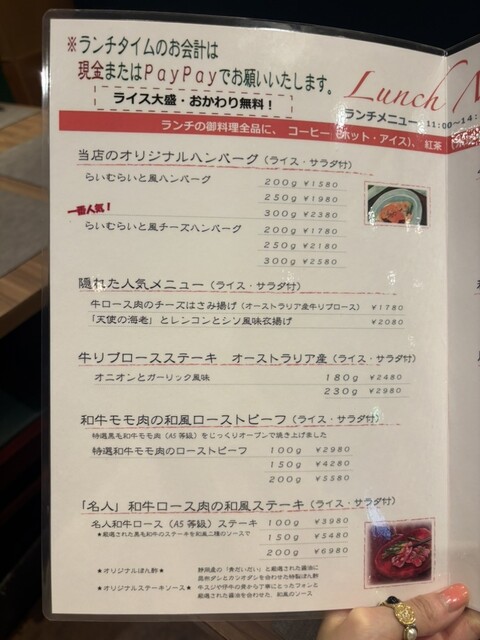 ※ランチタイムのお会計は
現金またはPayPayでお願いいたします。
ライス大盛・おかわり無料！
Lunch M
ランチメニュー 11:00〜14:
ランチの御料理全品に、 コーヒー (ホット・アイス)、 紅茶
当店のオリジナルハンバーグ (ライス・サラダ付)
らいむらいと風ハンバーグ 200g ¥1580
250g ¥1980
300g ¥2380
一番人気！
らいむらいと風チーズハンバーグ 200g ¥1780
250g ¥2180
300g ¥2580
隠れた人気メニュー (ライス・サラダ付)
牛ロース肉のチーズはさみ揚げ (オーストラリア産牛リブロース) ¥1780
「天使の海老」とレンコンとシソ風味衣揚げ ¥2080
牛リブロースステーキ オーストラリア産 (ライス・サラダ付)
オニオンとガーリック風味 180g ¥2480
230g ¥2980
和牛モモ肉の和風ローストビーフ (ライス・サラダ付)
特選黒毛和牛モモ肉 (A5等級) をじっくりオーブンで焼き上げました
特選和牛モモ肉のローストビーフ 100g ¥2980
150g ¥4280
200g ¥5580
「名人」和牛ロース肉の和風ステーキ (ライス・サラダ付)
名人和牛ロース (A5等級) ステーキ 100g ¥3980
★厳選された黒毛和牛のステーキを和風二種のソースで
150g ¥5480
200g ¥6980
★オリジナルぽん酢★ 静岡産の「食だいだい」と厳選された醤油に
昆布ダシとカツオダシを合わせた特製ぽん酢
★オリジナルステーキソース★ 牛スジや仔牛の骨から丁寧にとったフォンと
厳選された醤油を合わせた、和風のソース